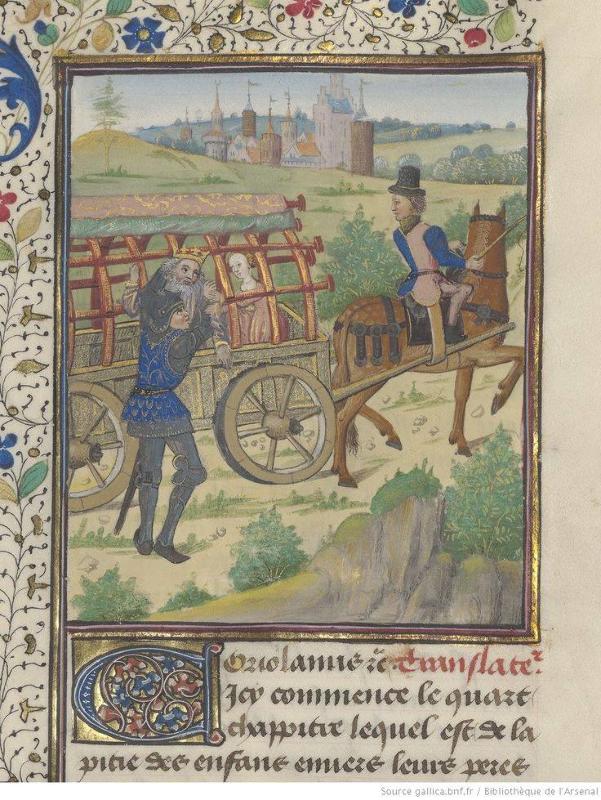 Coriolanus rc̄ Translateʳ
Icy commence le quart
chappitre lequel est de la
pitie des enfans enuers leurs peres
Source gallica.bnf.fr / Bibliothèque de l'Arsenal